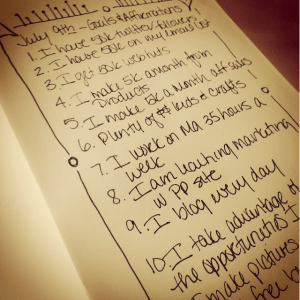 July 9th - Goals & Affirmations
1. I have 50k twitter followers
2. I have 50k on my email list
3. I get 50k web hits
4. I make 5k a month from
Products
5. I make 5k a Month off
6. Plenty of $ kids & crafts
7. I work on Ma 35 hours a
week
8. I am marketing
w PP site
9. I blog every day
10. I take advantage of
the opportunities
I make pictures
free